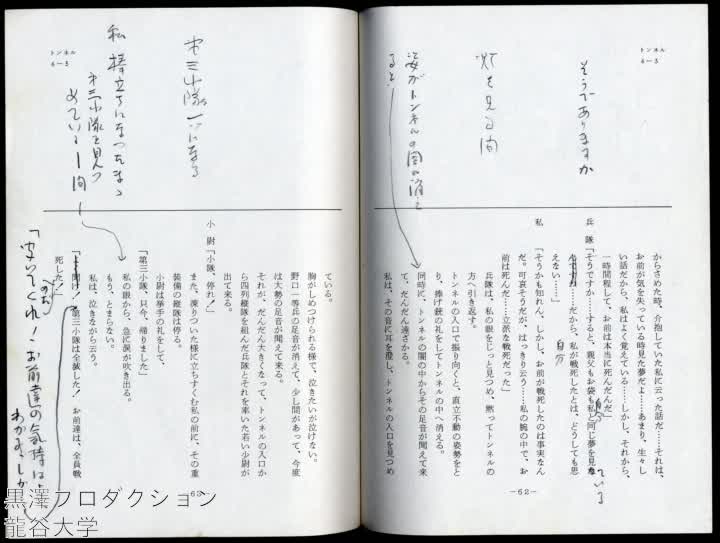 トンネル
4-3
そうでありますか
灯を見る間
姿がトンネルの闇に消え
ると
からさめた時、介抱していた私に云った話だ……それは、
お前が気を失っている時見た夢だよ……あまり、生々し
い話だから、私はよく覚えている……しかし、それから、
一時間程して、お前は本当に死んだんだ」
兵隊「そうですか……すると、親父もお袋も私と同じ夢を見
ている
……だから、私が戦死したとは、どうしても思
自分
えない……」
私「そうかも知れん、しかし、お前が戦死したのは事実なん
だ。可哀そうだが、はっきり云う……私の腕の中で、お
前は死んだ……立派な戦死だった」
兵隊は、私の眼をじっと見つめ、黙ってトンネルの
方へ引き返す。
トンネルの入口で振り向くと、直立不動の姿勢をと
り、捧げ銃の礼をしてトンネルの中へ消える。
同時に、トンネルの闇の中からその足音が聞えて来
て、だんだん遠ざかる。
私は、その音に耳を澄し、トンネルの入口を見つめ
—62—
トンネル
4-3
私 棒立ちになったまゝ
第三小隊を見つ
めている一間
ている。
胸がしめつけられる様で、泣きたいが泣けない。
野口一等兵の足音が消えて、少し間があって、今度
は大勢の足音が聞えて来る。
それが、だんだん大きくなって、トンネルの入口か
ら四列縦隊を組んだ兵隊とそれを率いた若い少尉が
出て来る。
小尉「小隊、停れ！」
また、凍りついた様に立ちすくむ私の前に、その重
装備の縦隊は停る。
小尉は挙手の礼をして、
「第三小隊、只今、帰りました」
私の眼から、急に涙が吹き出る。
もう、とまらない。
私は、泣きながら云う。
「聞け！ 第三小隊は全滅した！ お前達は、全員戦
死した！」
「聞いてくれ！お前達の気持は、
わかる、しか
63
黒澤プロダクション
龍谷大学